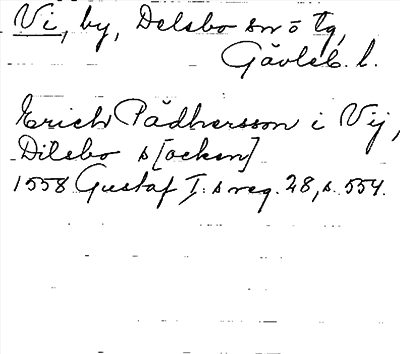 Vi, by, Delsbo sn o tg,
Gävleb. l.
Erich Pådhersson i Vij,
Dilsbo s[ocken]
1558 Gustaf I:s reg. 28, s. 554.